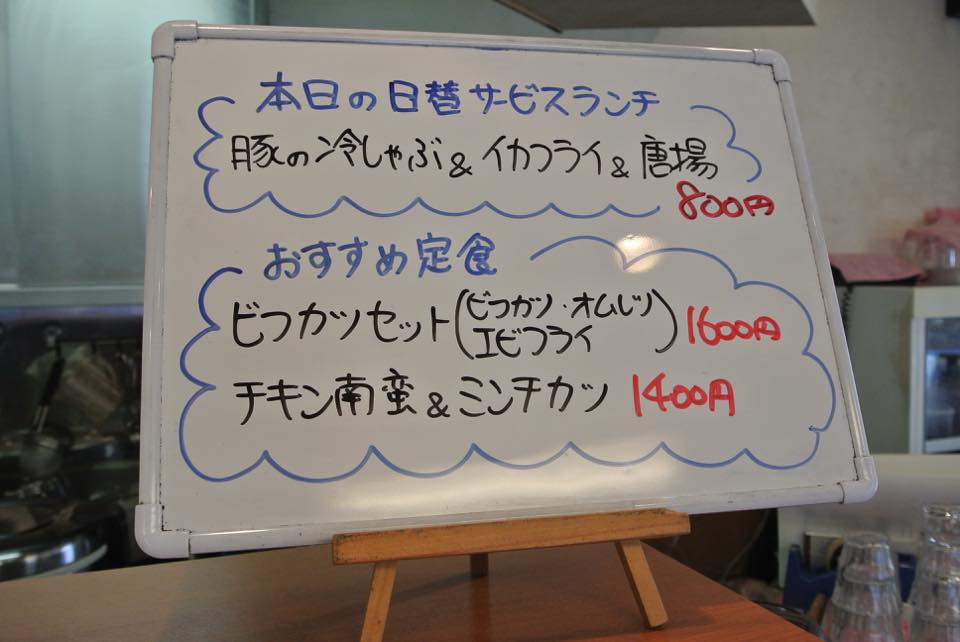 本日の日替サービスランチ
豚の冷しゃぶ&イカフライ&唐揚
800円
おすすめ定食
ビフカツセット(ビフカツ・オムレツ
エビフライ) 1600円
チキン南蛮&ミンチカツ 1400円